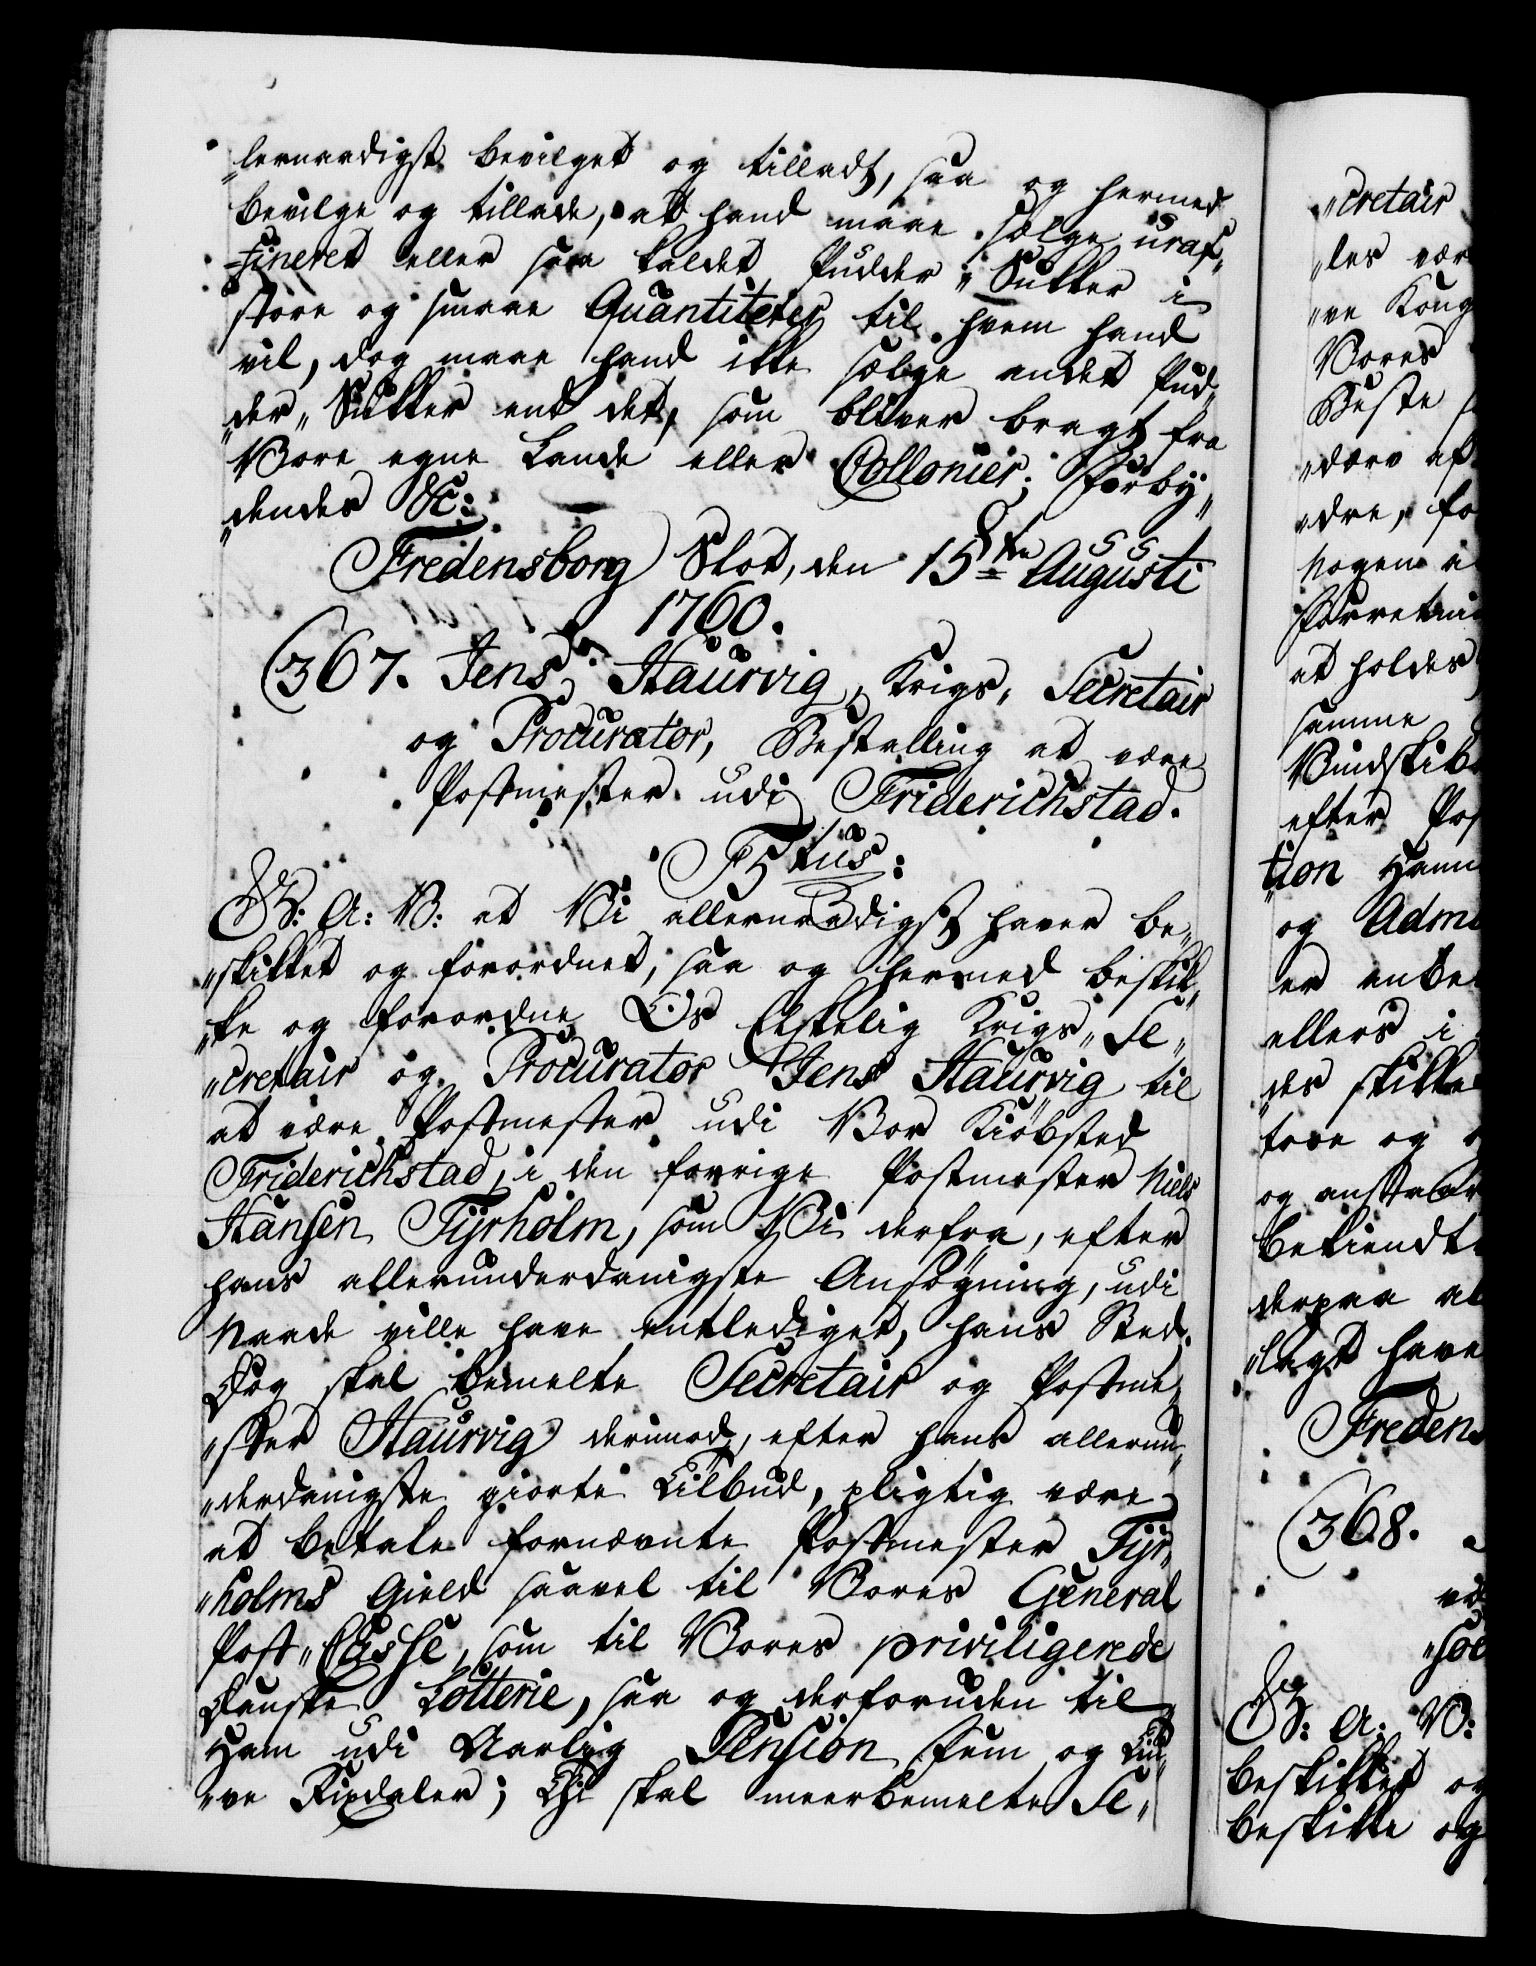 "lernaadigst bevilget og tilladt, saa og hermed
bevilge og tillade, at hand maae sælge uraf"
"fineret eller saa kaldet Pudder" Sukker i
store og smaae Quantiteter til hvem hand
vil, dog maae hand ikke sælge andet Pud"
"der" Sukker end det, som bliver bragt fra
Vore egne Lande eller Collonier; Forby"
"dendes &c:
Fredensborg Slot, den 15de Augusti
1760.
367. Jens Haurvig, Krigs" Secretair
og Procurator, Bestalling at være
Postmester udi Friderichstad.
F5tus:
G: A: V: at Vi allernaadigst haver be"
"skikket og forordnet, saa og hermed beskik"
"ke og forordne Os Elskelig Krigs" Se"
"cretair og Procurator Jens Haurvig til
at være Postmester udi Vor Kiøbsted
Friderichstad, i den forrige Postmester Niels
Hansen Tyrholm, som Vi derfra, efter
hans allerunderdanigste Ansøgning, udi
Naade ville have entlediget, hans Sted.
Dog skal bemelte Secretair og Postme"
"ster Haurvig derimod, efter hans allerun"
"derdanigste giorte Tilbud, pligtig være
at betale fornævnte Postmester Tyr"
"holms Gield saavel til Vores General
Post" Casse, som til Vores priviligerede
Danske Lotterie, saa og derforuden til
Ham udi Aarlig Pension Fem og Tiu"
"ve Rixdaler; Thi skal meerbemelte Se"
"cretair
"les vær
"ve Kong
Vores
Beste
"dærv af
"dre, fo
Nogen
Forretni
at holdes
samme
Vindskib
efter Pos
tion Ham
og Admi
er anbe
ellers i
des skikke
tere og
og ansta
bekiendt
derpaa al
"lagt have
Fredens
368.
væ
"søe
G: A: V:
beskikket og
beskikke og